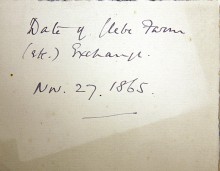 Date of Glebe Farm
(&c.) Exchange.
Nov. 27. 1865.